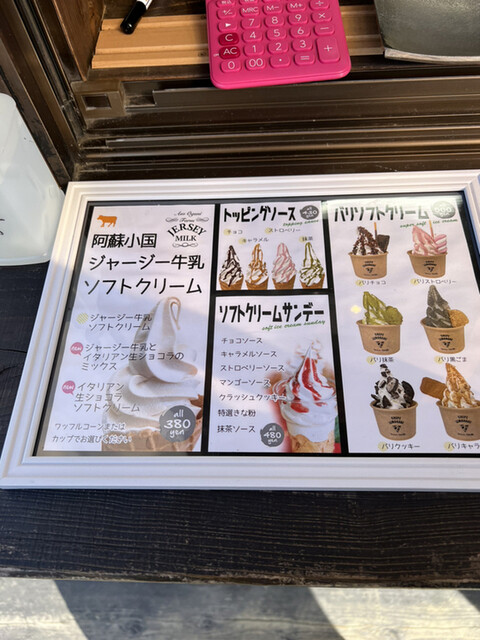 C
AC
MC
MR
M-
M+
7
8
9
4
5
6
1
2
3
0
00
Aso Oguni
Farm
JERSEY
MILK
阿蘇小国
ジャージー牛乳
ソフトクリーム
ジャージー牛乳
ソフトクリーム
ジャージー牛乳と
イタリアン生ショコラの
ミックス
イタリアン
生ショコラ
ソフトクリーム
ワッフルコーンまたは
カップでお選びください
all
380
yen
トッピングソース
topping sauce
all
430
チョコ
ストロベリー
キャラメル
抹茶
ソフトクリームサンデー
soft ice cream sunday
チョコソース
キャラメルソース
ストロベリーソース
マンゴーソース
クラッシュクッキー
特選きな粉
抹茶ソース
all
480
yen
パリソフトクリーム
パリチョコ
パリストロベリー
パリ抹茶
パリ黒ごま
パリクッキー
パリキャラ